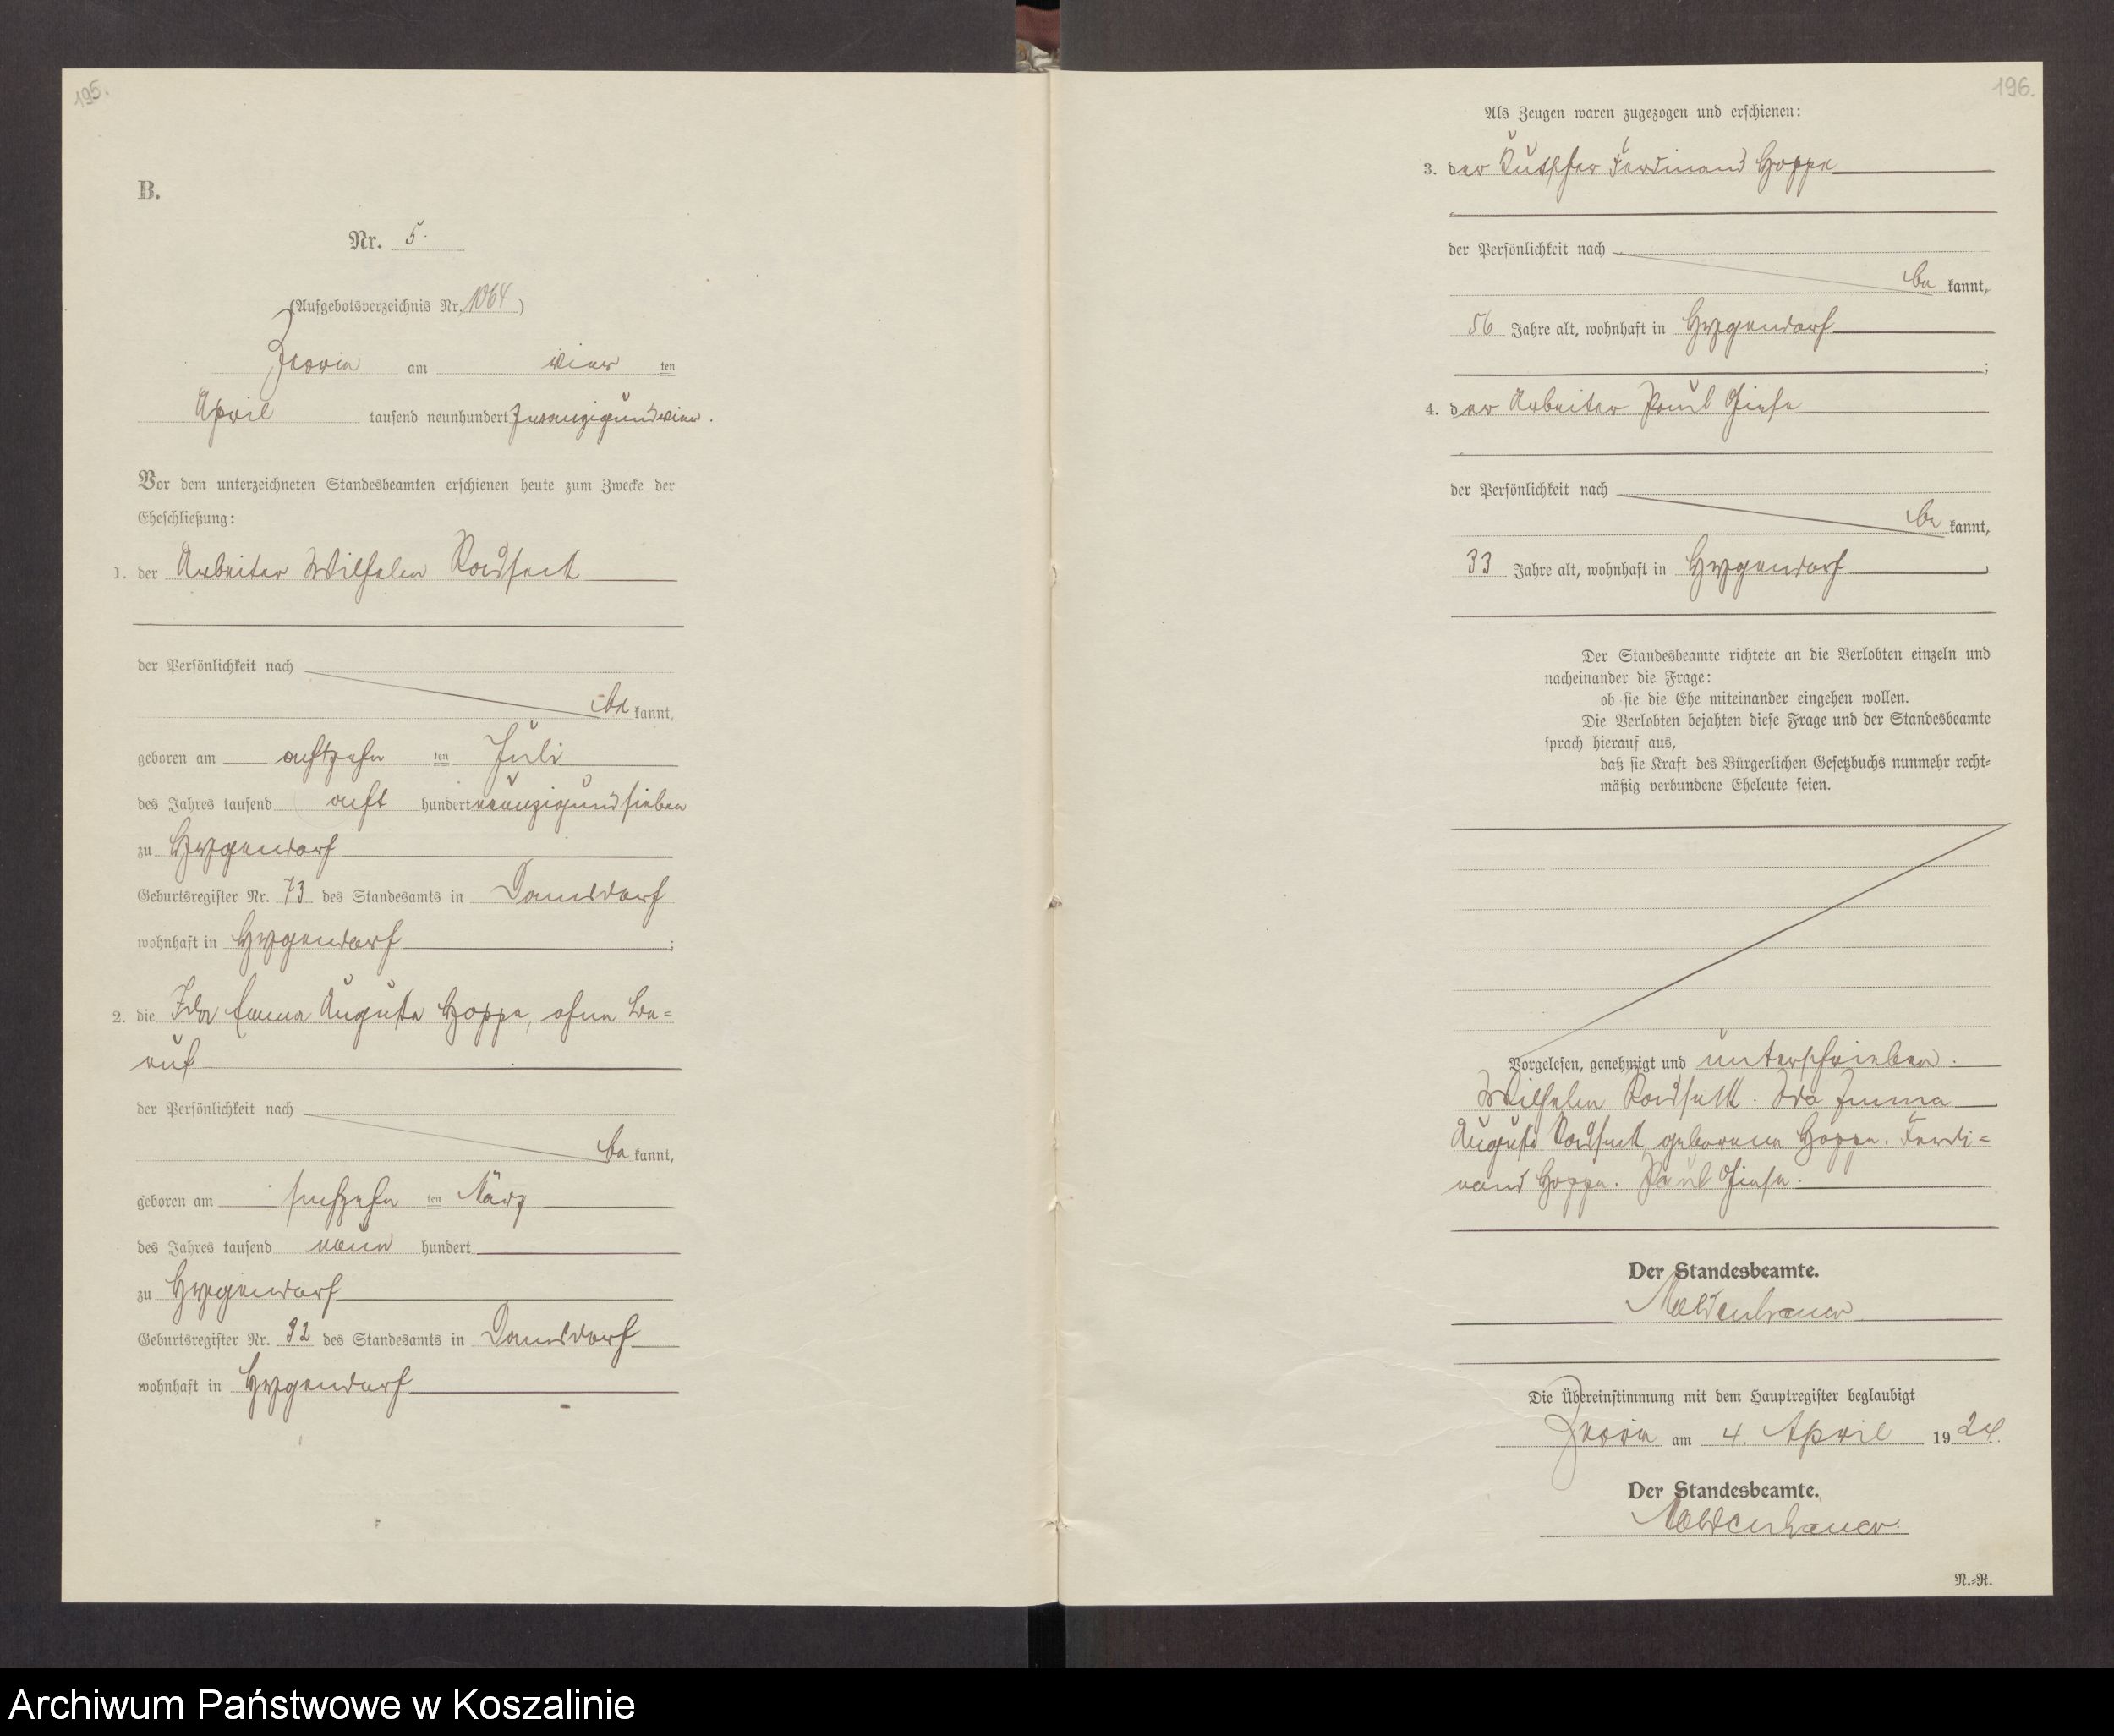 195.
B.
Nr. 5.
(Aufgebotsverzeichnis Nr. 1064)
am vier ten
April tausend neunhundert zwanzigundvier.
Vor dem unterzeichneten Standesbeamten erschienen heute zum Zwecke der
Eheschließung:
1. der Arbeiter Wilhelm
der Persönlichkeit nach
be kannt,
geboren am achtzehn ten Juli
des Jahres tausend acht hundert neunzigundsieben
zu Hygendorf
Geburtsregister Nr. 73 des Standesamts in Damsdorf
wohnhaft in Hygendorf ;
2. die Ida Emma Auguste Hoppe, ohne Be=
ruf
der Persönlichkeit nach
be kannt,
geboren am sechzehn ten März
des Jahres tausend neun hundert
zu Hygendorf
Geburtsregister Nr. 32 des Standesamts in Damsdorf
wohnhaft in Hygendorf
196.
Als Zeugen waren zugezogen und erschienen:
3. der Kutscher Ferdinand Hoppe
der Persönlichkeit nach
be kannt,
56 Jahre alt, wohnhaft in Hygendorf
;
4. der Arbeiter Paul Giese
der Persönlichkeit nach
be kannt,
33 Jahre alt, wohnhaft in Hygendorf
Der Standesbeamte richtete an die Verlobten einzeln und
nacheinander die Frage:
ob sie die Ehe miteinander eingehen wollen.
Die Verlobten bejahten diese Frage und der Standesbeamte
sprach hierauf aus,
daß sie Kraft des Bürgerlichen Gesetzbuchs nunmehr recht=
mäßig verbundene Eheleute seien.
Vorgelesen, genehmigt und unterschrieben.
Wilhelm Ida Emma
Auguste geborene Hoppe. Ferdi=
nand Hoppe. Paul Giese.
Der Standesbeamte.
Moldenhauer
Die Übereinstimmung mit dem Hauptregister beglaubigt
am 4. April 1924.
Der Standesbeamte.
Moldenhauer.
N.=R.
Archiwum Państwowe w Koszalinie